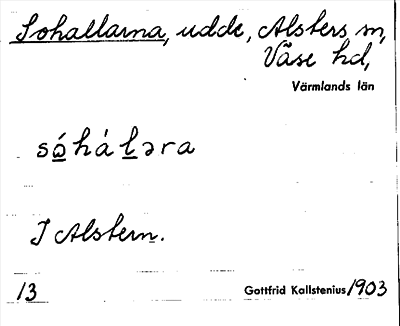 Sohallarna, udde, Alsters sn,
Väse hd,
Värmlands län
sώ̲hál̲əra
I Alstern.
13
Gottfrid Kallstenius 1903